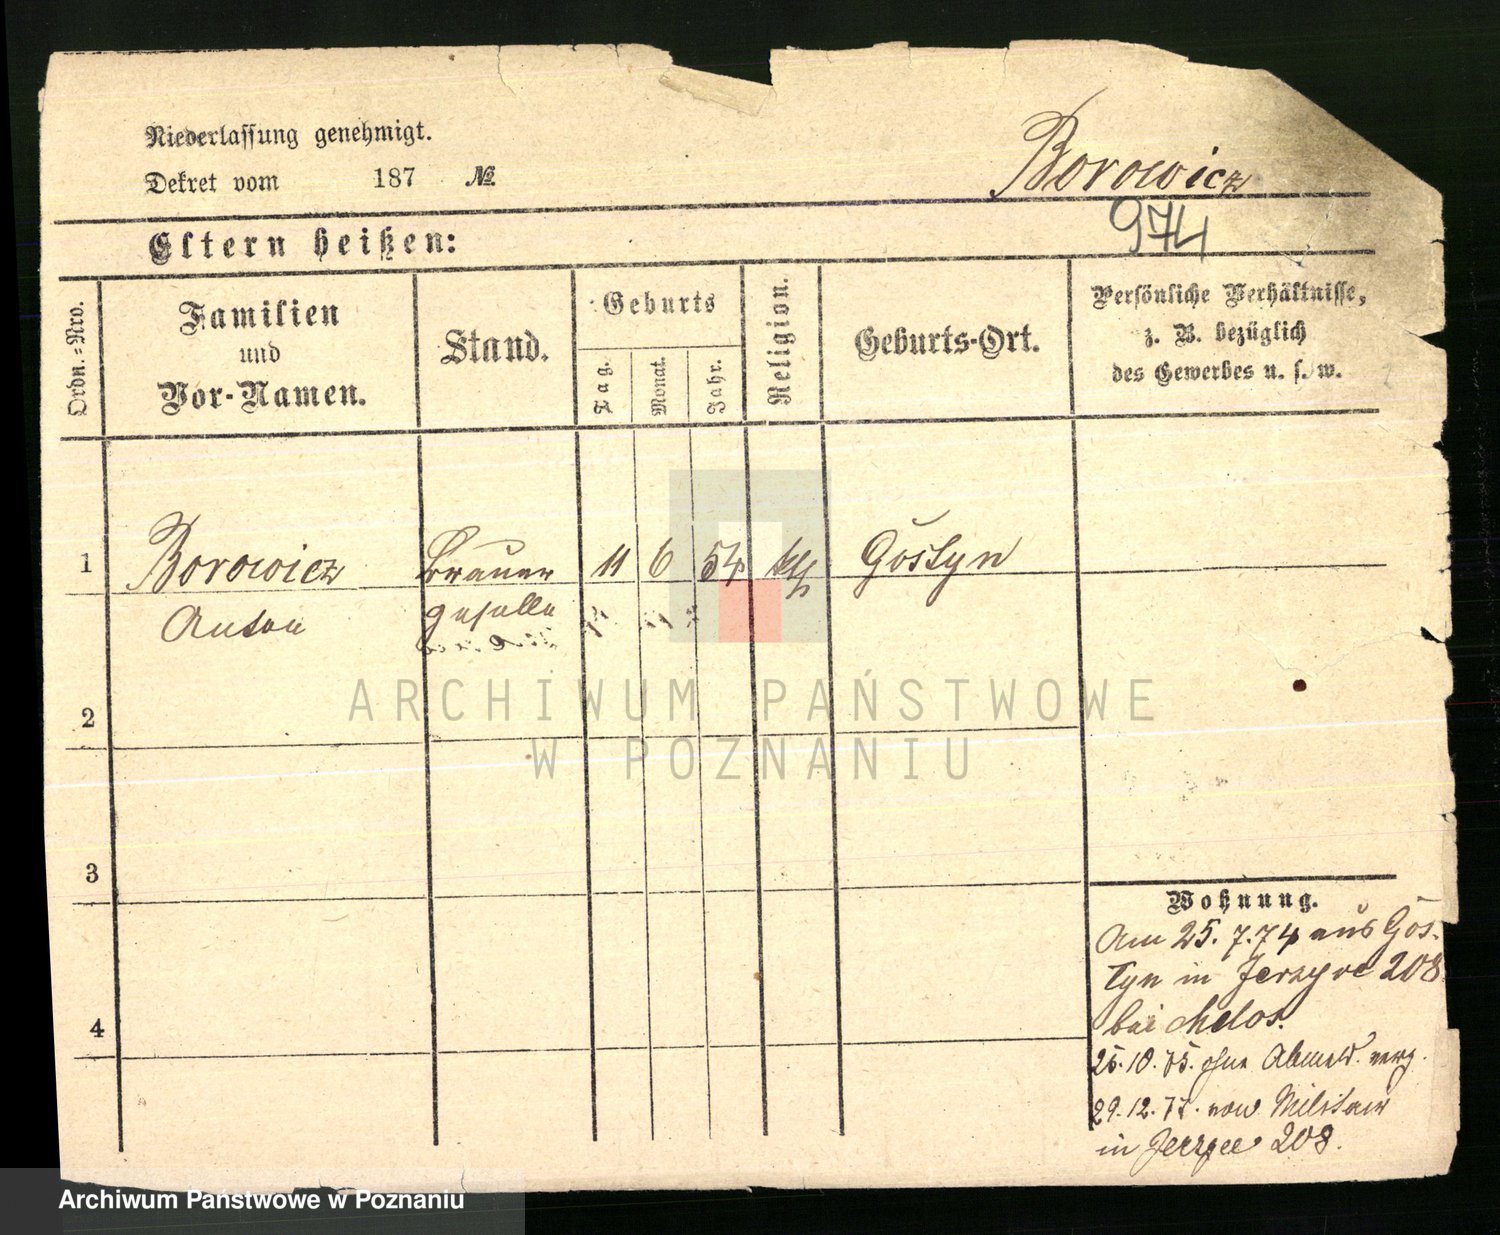 Niederlassung genehmigt.
Dekret vom 187 №
Borowicz
974
Eltern heißen:
Ordn.-Nro.
Familien
und
Vor-Namen.
Stand.
Geburts
Tag.
Monat.
Jahr.
Religion.
Geburts-Ort.
Persönliche Verhältnisse,
z. B. bezüglich
des Gewerbes u. s. w.
1 Borowicz Brauer 11 6 54 kth Gostyn
Anton geselle
ARCHIWUM PAŃSTWOWE
W POZNANIU
2
3
4
Wohnung.
Am 25. 7. 74 aus Gos-
tyn in Jerzyce 208
bei Melos.
25. 10. 75. ohne Abmeld.
29. 12. 77. vom Militair
in Jerzyce 208.
Archiwum Państwowe w Poznaniu